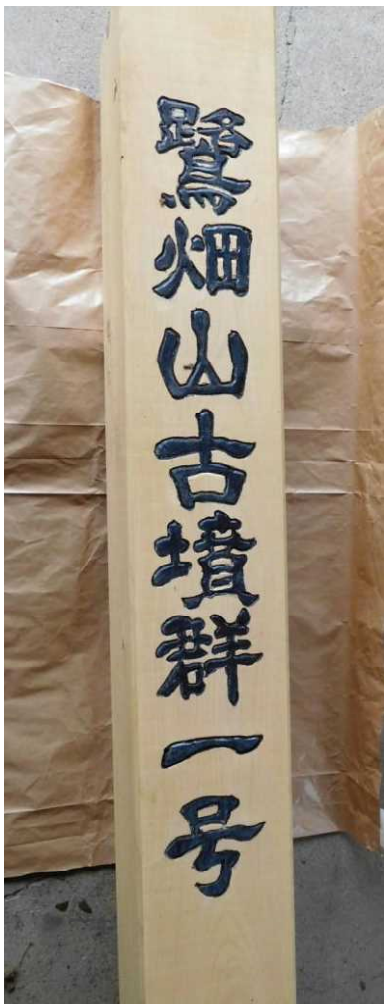 鷺畑山古墳群一号